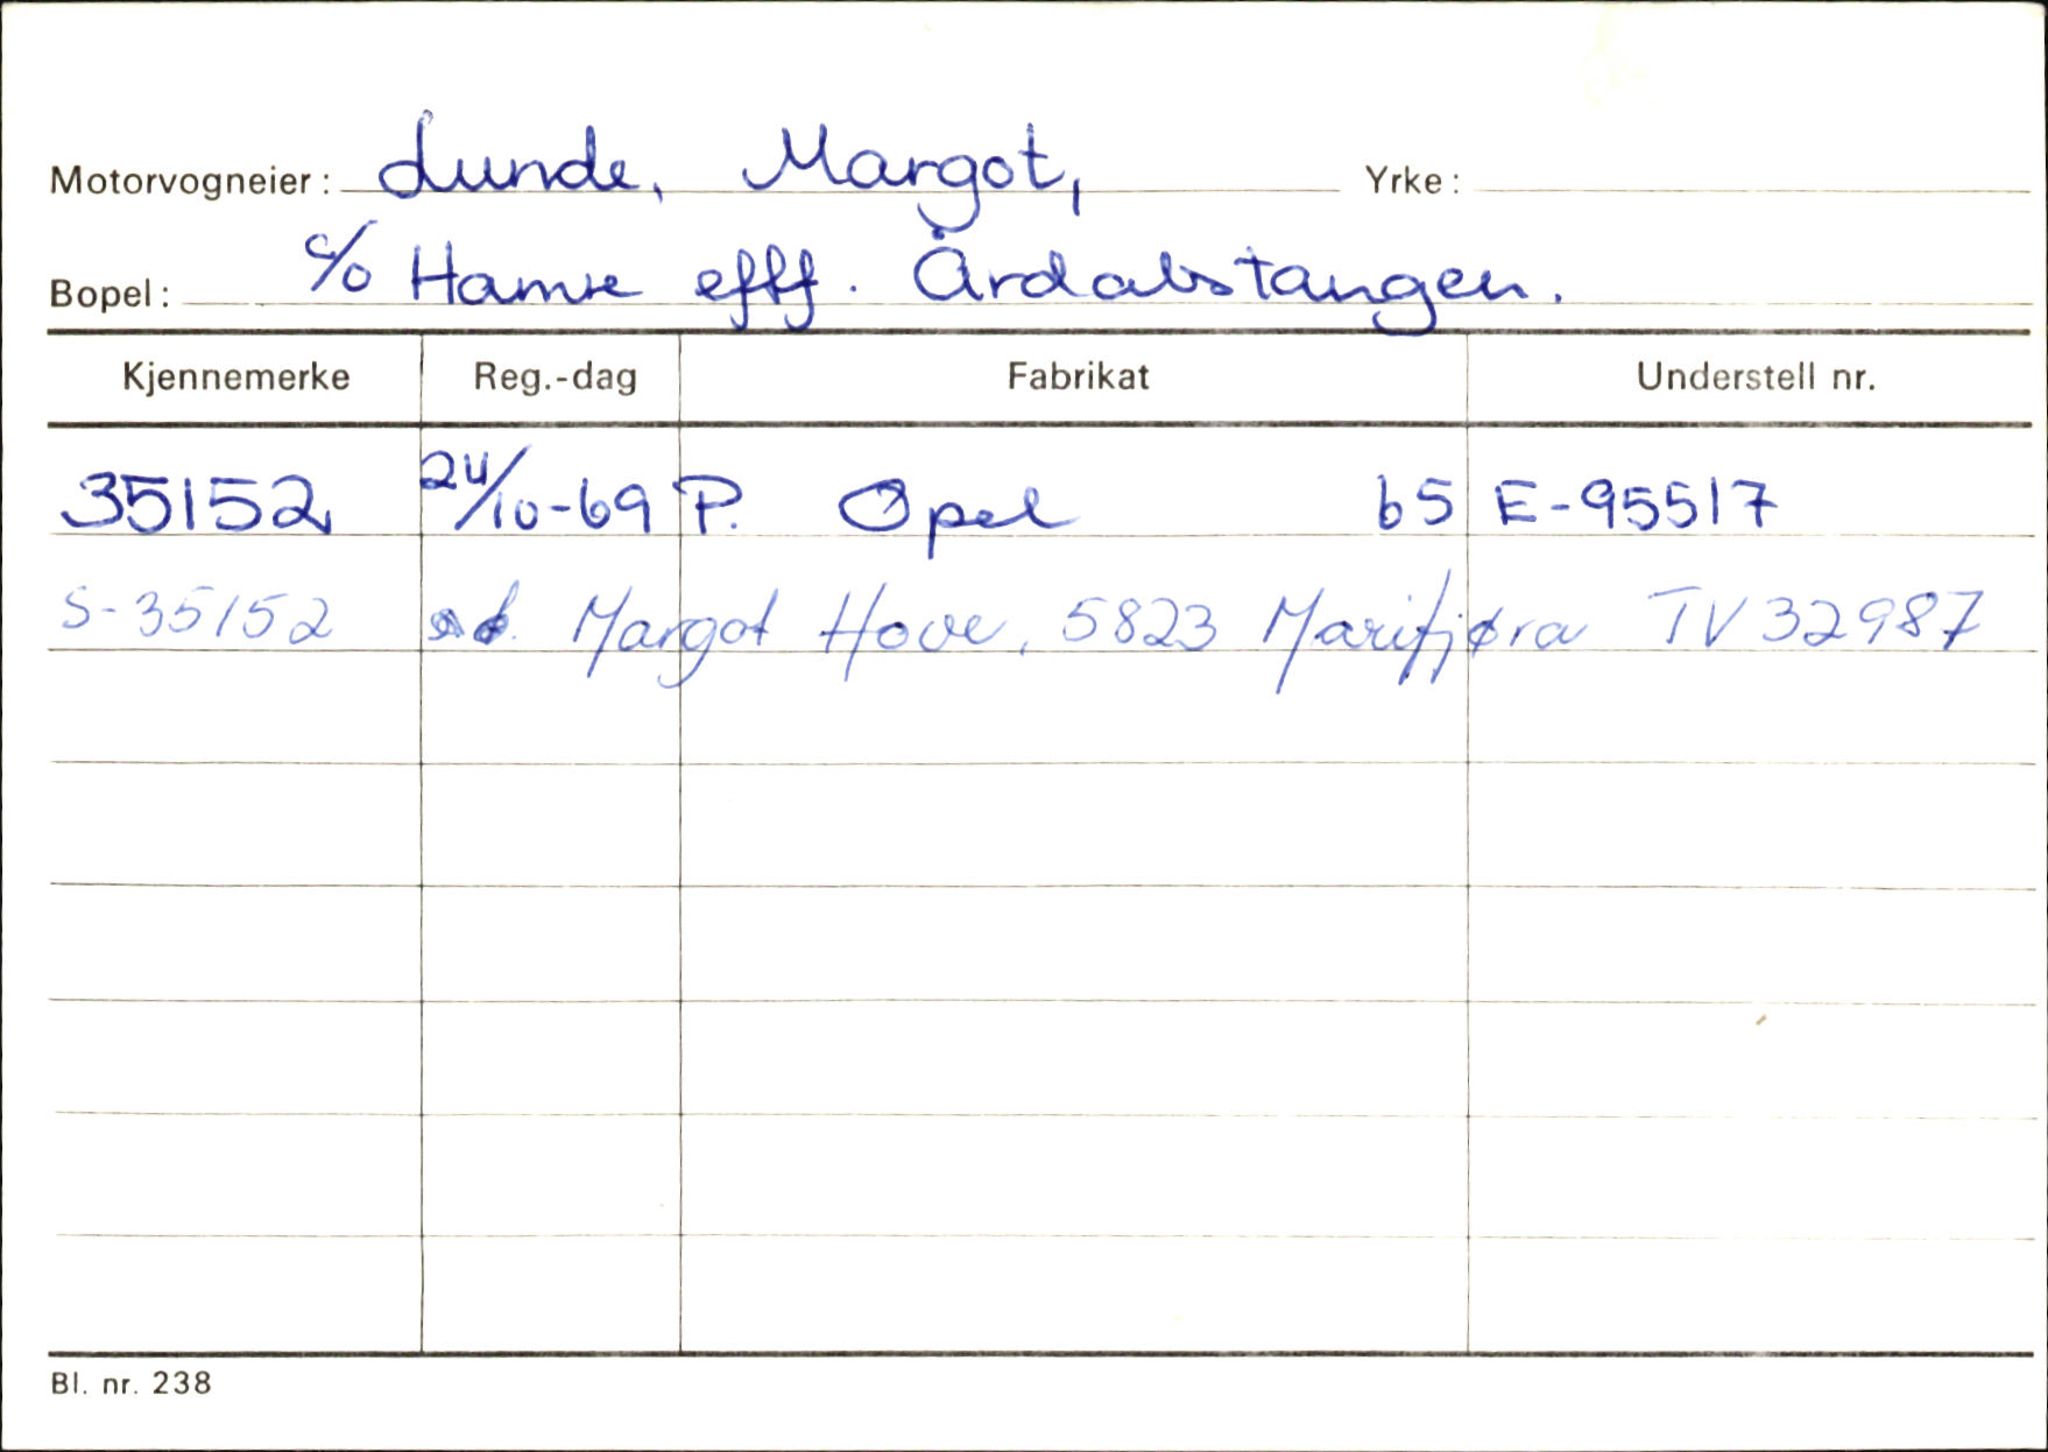 Motorvogneier: Lunde, Margot, Yrke:
Bopel: c/o Hamre eftf. Årdalstangen.
Kjennemerke Reg.-dag Fabrikat Understell nr.
35152 24/10-69 P. Opel 65 E-95517
S-35152 Margot Hove, 5823 Marifjøra TV 32987
Bl. nr. 238